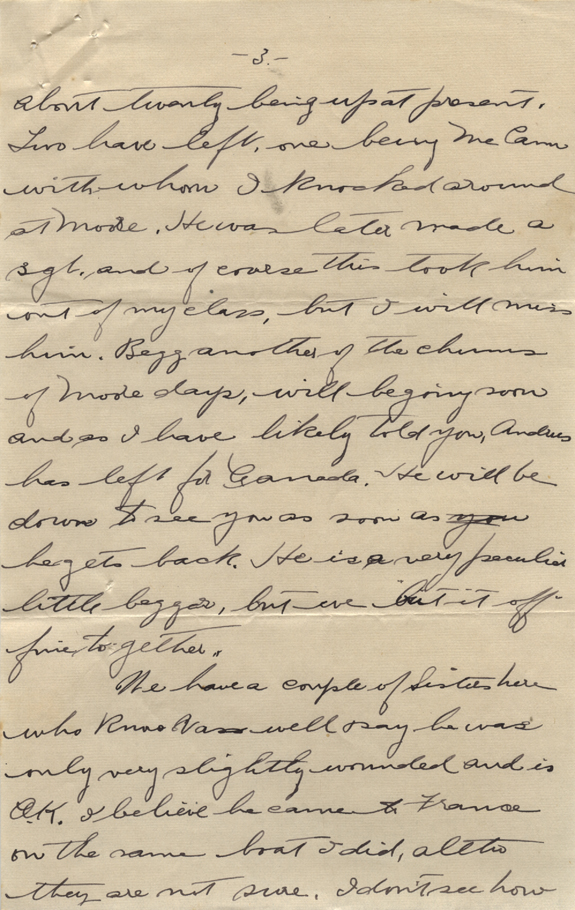 -3-
about twenty being up at present.
Two have left, one being McCann
with whom I knocked around
at Moore. He was later made a
sgt. and of course this took him
out of my class, but I will miss
him. Begg another of the chums
of Moore days, will be going soon
and as I have likely told you, Andrus
has left for Canada. He will be
down to see you as soon as you
he gets back. He is a very peculiar
little beggar, but we "hit it off
fine together".
We have a couple of Sisters here
who know Vass well & say he was
only very slightly wounded and is
O.K. I believe he came to France
on the same boat I did, altho
they are not sure. I don't see how